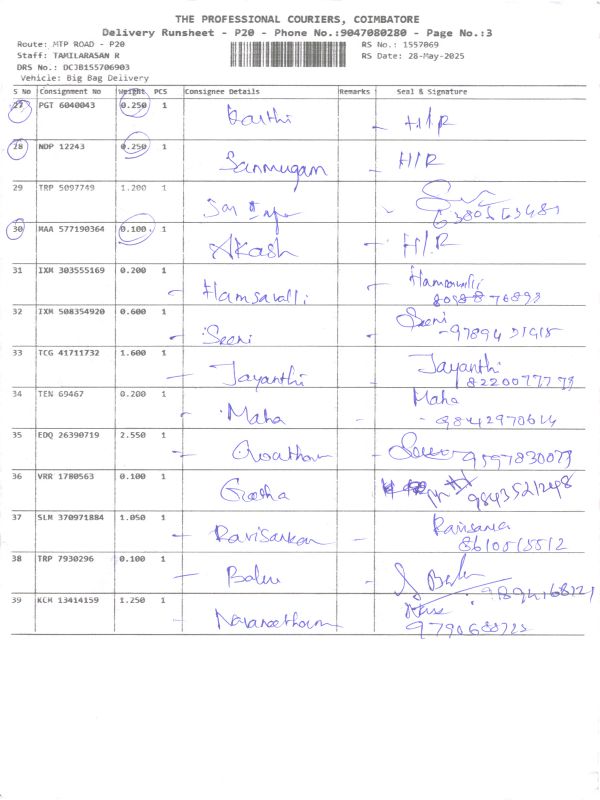 THE PROFESSIONAL COURIERS, COIMBATORE
Delivery Runsheet - P20 - Phone No.:9047080280 - Page No.:3
Route: MTP ROAD - P20
RS No.: 1557069
Staff: TAMILARASAN R
RS Date: 28-May-2025
DRS No.: DCJB155706903
Vehicle: Big Bag Delivery
S No Consignment No Weight PCS Consignee Details Remarks Seal & Signature
27 PGT 6040043 0.250 1 Karthi - H/R
28 NDP 12243 0.250 1 Sanmugam - H/R
29 TRP 5097749 1.200 1
30 MAA 577190364 0.100 1 Akash - H/R
31 IXM 303555169 0.200 1 - Hamsavalli -
32 IXM 508354920 0.600 1 - Seeni - Seeni
33 TCG 41711732 1.600 1 - Jayanthi - Jayanthi
8220077773
34 TEN 69467 0.200 1 - Maha Maha
- 9842970614
35 EDQ 26390719 2.550 1 - Gowtham - 9597830073
36 VRR 1780563 0.100 1
37 SLM 370971884 1.050 1 - Ravisankar -
8610515512
38 TRP 7930296 0.100 1 - Balu - Balu
39 KCM 13414159 1.250 1 - Navaneetham